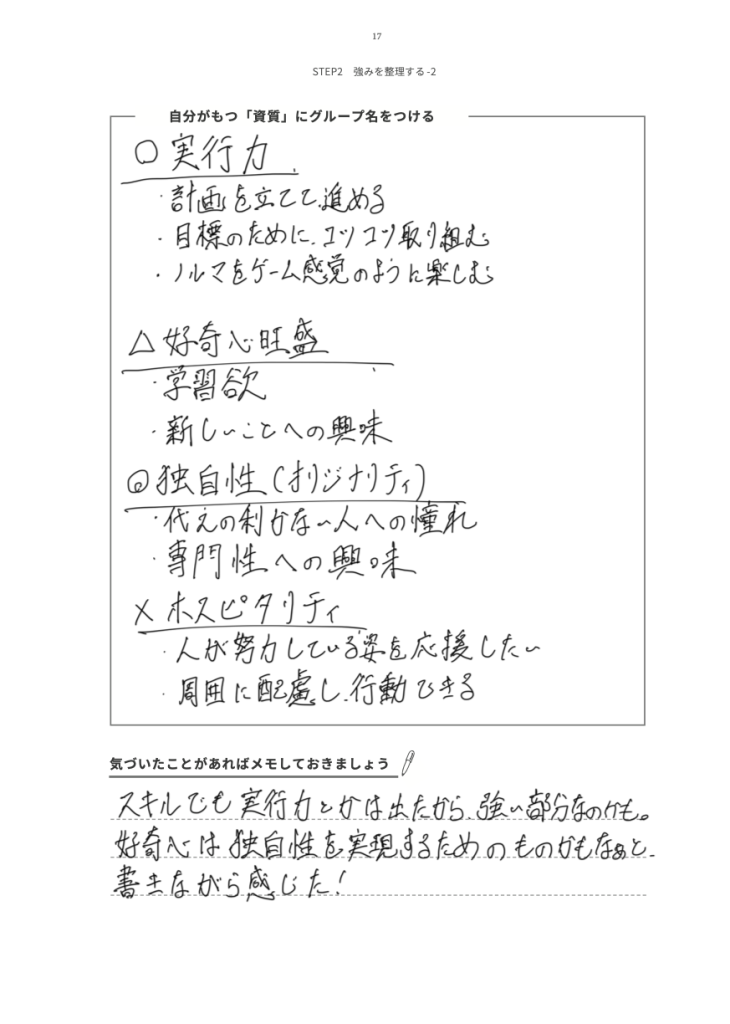 17
STEP2 強みを整理する -2
自分がもつ「資質」にグループ名をつける
○ 実行力
・計画を立てて進める
・目標のために、コツコツ取り組む
・ノルマをゲーム感覚のように楽しむ
△ 好奇心旺盛
・学習欲
・新しいことへの興味
◎ 独自性(オリジナリティ)
・代えの利かない人への憧れ
・専門性への興味
× ホスピタリティ
・人が努力している姿を応援したい
・周囲に配慮し、行動できる
気づいたことがあればメモしておきましょう
スキルでも実行力とかは出たから、強い部分なのかも。
好奇心は独自性を実現するためのものかもなぁと、
書きながら感じた!